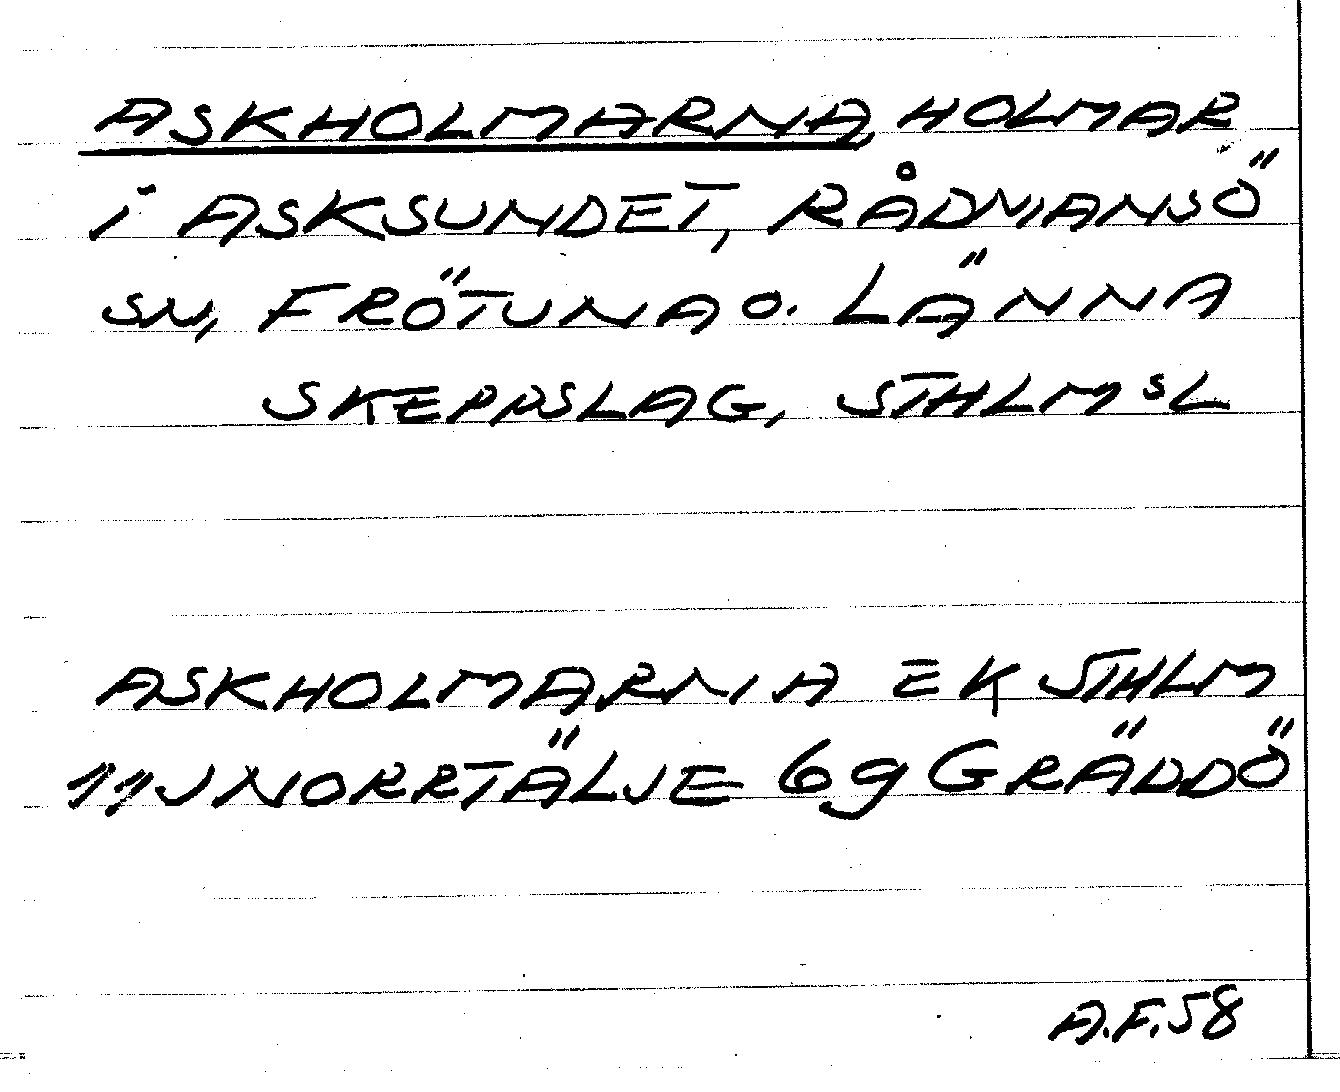 ASKHOLMARNA, HOLMAR
I ASKSUNDET, RÅDMANSÖ
SN, FRÖTUNA O. LÄNNA
SKEPPSLAG, STHLMSL
ASKHOLMARNA EK STHLM
11J NORRTÄLJE 6g GRÄDDÖ
A.F.58